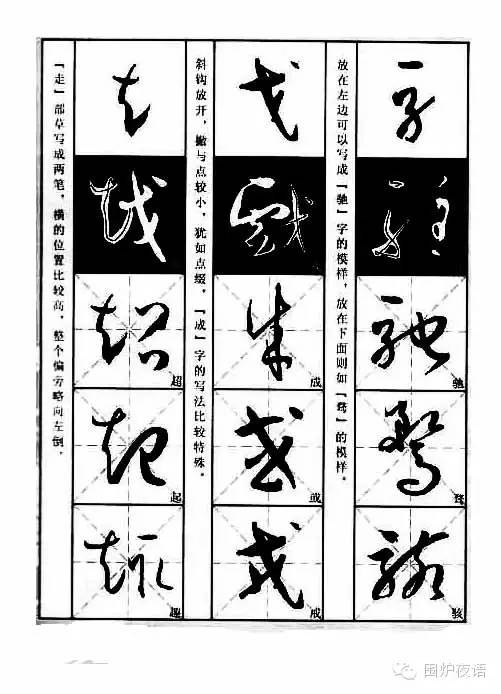 放在左边可以写成「驰」字的模样，放在下面则如「骛」的模样。
驰
骛
骇
斜钩放开，撇与点较小，犹如点缀，「成」字的写法比较特殊。
戈
成
或
戒
「走」部草写成两笔，横的位置比较高，整个偏旁略向左倒。
超
起
趣
围炉夜语